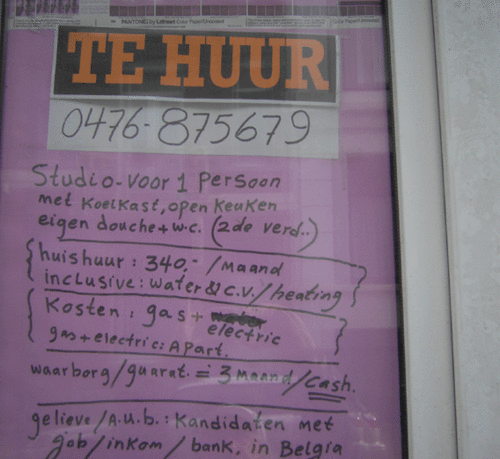 TE HUUR
0476-875679
Studio-voor 1 Persoon
met Koelkast, open Keuken
eigen douche+w.c. (2de verd..)
huishuur: 340,- / Maand
inclusive: water & c.v./heating
Kosten: gas + electric
gas+electric: Apart.
waarborg/guarat. = 3 Maand/cash.
gelieve/A.u.b.: Kandidaten met
job/inkom/bank, in Belgia